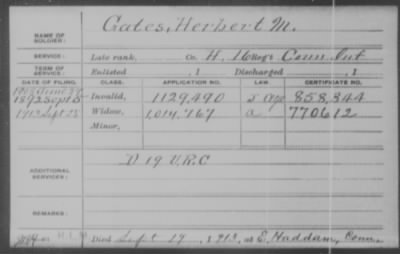 Gates, Herbert M.
NAME OF SOLDIER:
SERVICE: Late rank, Co. H, 16 Reg't Conn. Inf
TERM OF SERVICE: Enlisted , 1 Discharged , 1
DATE OF FILING. CLASS. APPLICATION NO. LAW. CERTIFICATE NO.
1892 Sept 5 Invalid, 1129,490 858,344
1913 Sept 23 Widow, 1,014,767 a 770612
Minor,
D 19 V.R.C
ADDITIONAL SERVICES:
REMARKS:
Died Sept 19, 1913, at E. Haddam, Conn.